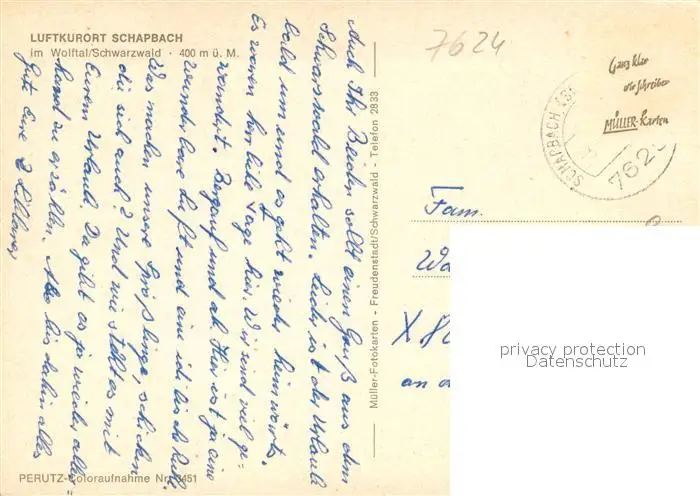 LUFTKURORT SCHAPBACH
im Wolftal/Schwarzwald · 400 m ü. M.
Auch Ihr Beiden sollt einen Gruß aus dem
Schwarzwald erhalten. Leider ist der Urlaub
bald um und es geht wieder heimwärts.
Es waren herrliche Tage hier. Wir sind viel ge-
wandert. Bergauf und ab. Hier ist ja eine
wunderbare Luft und
Was machen unsere Sprößlinge, schicken
die sich auch? Und wie steht es mit
Eurem Urlaub. Da gibt es ja wieder aller-
hand zu erzählen. Also bis dahin alles
Gute Eure 2
Müller-Fotokarten - Freudenstadt/Schwarzwald - Telefon 2833
PERUTZ-Coloraufnahme Nr. 3451
7624
Ganz klar
wir schreiben
MÜLLER-Karten
SCHAPBACH
762
Fam.
X
an d
privacy protection
Datenschutz